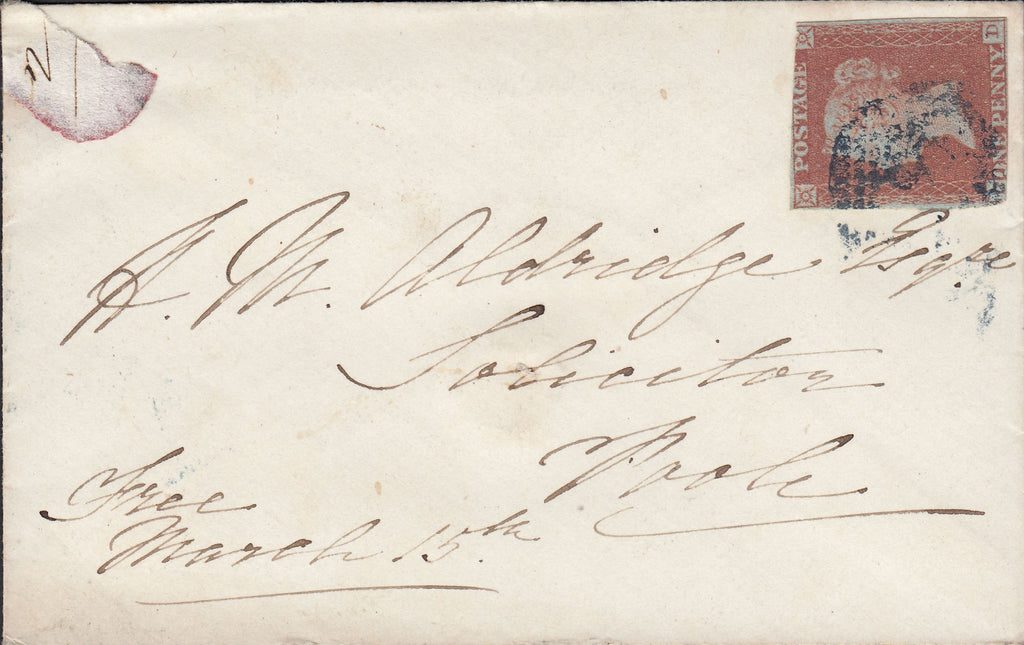 POSTAGE
ONE PENNY
D
H. M. Aldridge Esqre
Solicitor
Poole
Free
March 15th